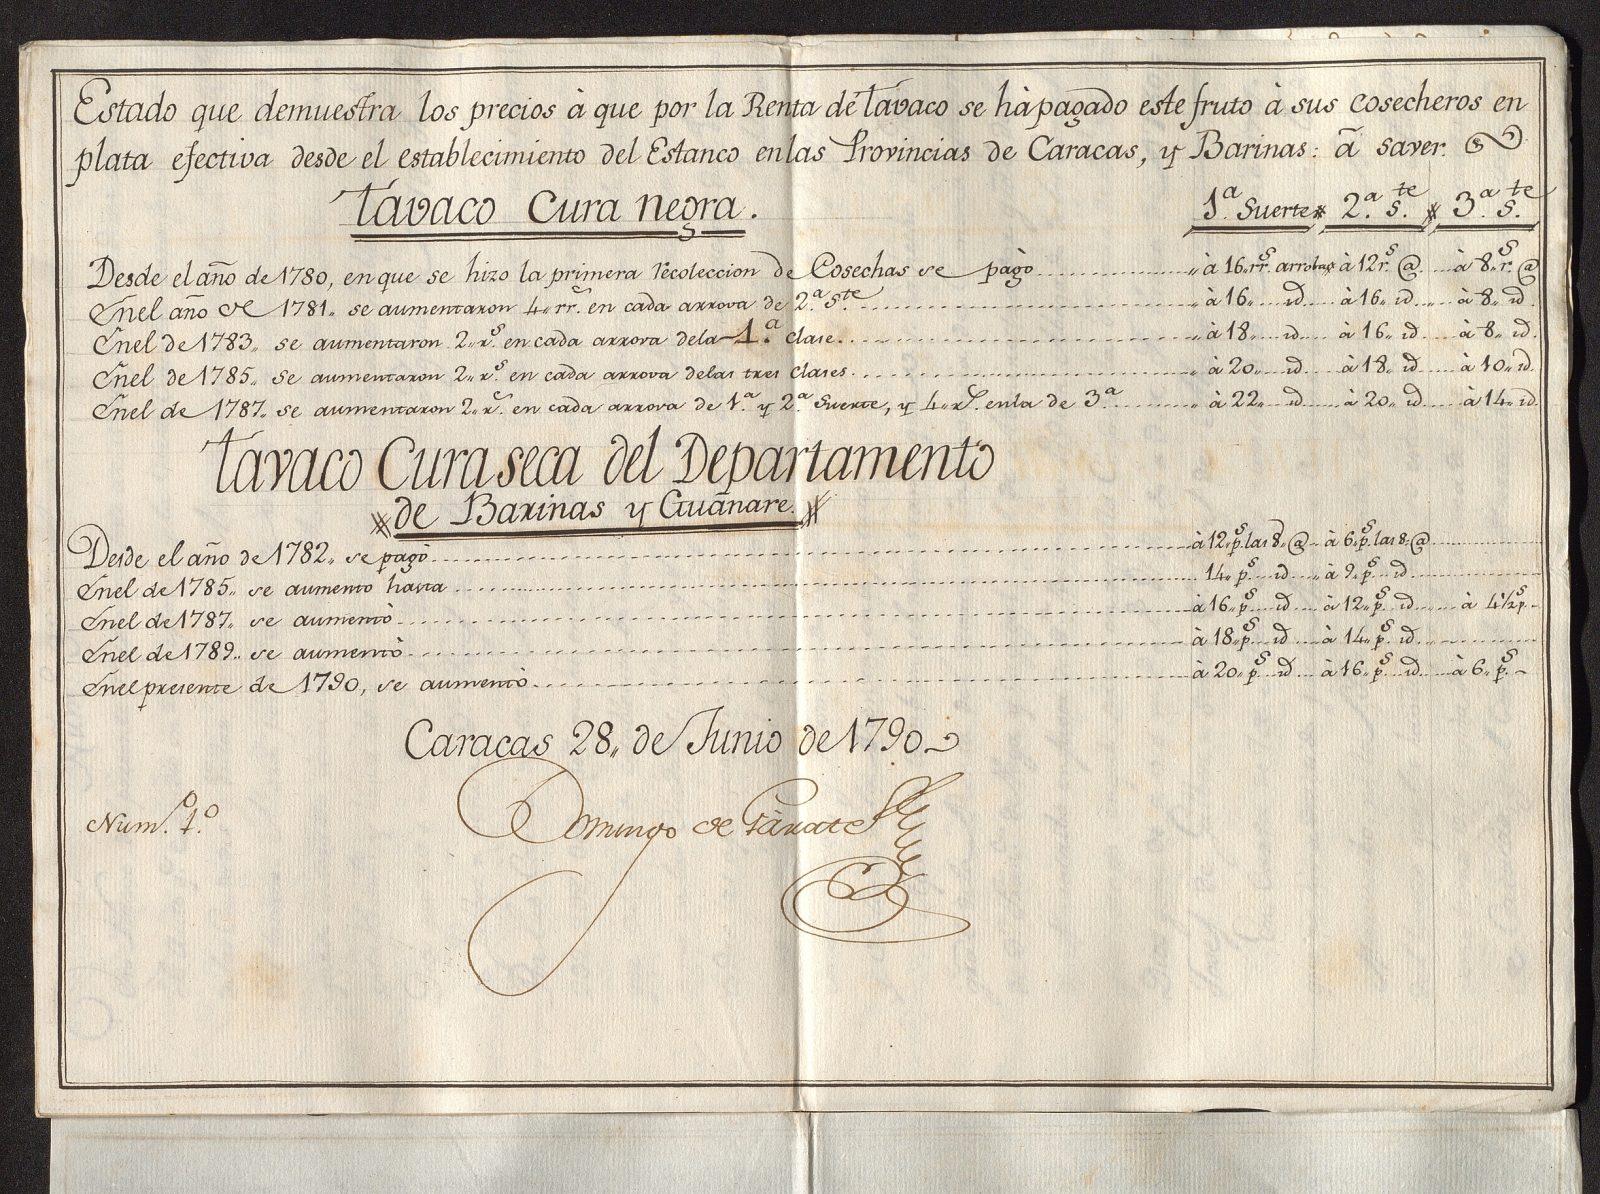 Estado que demuestra los precios à que por la Renta de tavaco se hà pagado este fruto à sus cosecheros en
plata efectiva desde el establecimiento del Estanco en las Provincias de Caracas, y Barinas: â saver.
Tavaco Cura negra. 1.ª Suerte 2.ª S.te 3.ª S.te
Desde el año de 1780, en que se hizo la primera recoleccion de Cosechas se pagò ,, à 16,, rr.s arrobas à 12 r.s @ à 8,, r.s @
En el año de 1781,, se aumentaron 4,, rr.s en cada arrova de 2.ª S.te ,, à 16,, id à 16,, id ,, à 8,, id.
En el de 1783,, se aumentaron 2,, r.s en cada arrova de la 1.ª Clase. ,, à 18,, id à 16,, id à 8,, id.
En el de 1785,, se aumentaron 2,, r.s en cada arrova de las tres Clases à 20,, id à 18,, id à 10,, id.
En el de 1787,, se aumentaron 2,, r.s en cada arrova de 1.ª y 2.ª Suerte, y 4,, r.s en la de 3.ª ,, à 22,, id à 20,, id à 14,, id.
Tavaco Cura seca del Departamento
de Barinas y Guanare.
Desde el año de 1782,, se pagò à 12,, p.s las 8,, @ à 6,, p.s las 8,, @
En el de 1785,, se aumentò hasta 14,, p.s id ,, à 9,, p.s id
En el de 1787,, se aumentò à 16,, p.s id à 12,, p.s id à 4 1/2 p.s
En el de 1789,, se aumentò à 18,, p.s id à 14,, p.s id
En el presente de 1790, se aumentò à 20,, p.s id à 16,, p.s id à 6,, p.s
Caracas 28,, de Junio de 1790
Num.º 1.º
Domingo de Gárate